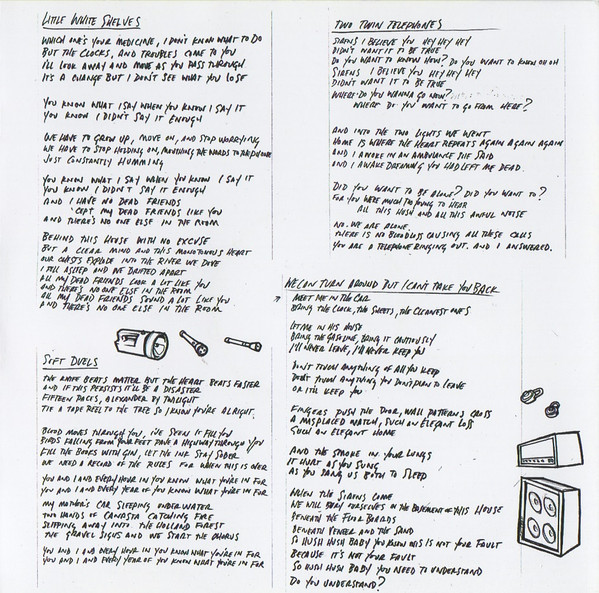 LITTLE WHITE SHELVES
WHICH ONE'S YOUR MEDICINE, I DON'T KNOW WHAT TO DO
BUT THE CLOCKS, AND TROUBLES COME TO YOU
I'LL LOOK AWAY AND MOVE AS YOU PASS THROUGH
IT'S A CHANGE BUT I DON'T SEE WHAT YOU LOSE
YOU KNOW WHAT I SAY WHEN YOU KNOW I SAY IT
YOU KNOW I DIDN'T SAY IT ENOUGH
WE HAVE TO GROW UP, MOVE ON, AND STOP WORRYING
WE HAVE TO STOP HOLDING ON, MOUTHING THE WORDS TO THE PHONE
JUST CONSTANTLY HUMMING
YOU KNOW WHAT I SAY WHEN YOU KNOW I SAY IT
YOU KNOW I DIDN'T SAY IT ENOUGH
AND I HAVE NO DEAD FRIENDS
'CEPT MY DEAD FRIENDS LIKE YOU
AND THERE'S NO ONE ELSE IN THE ROOM
BEHIND THIS HOUSE WITH NO EXCUSE
BUT A CLEAR MIND AND THIS MONOTONOUS HEART
OUR CHESTS EXPLODE INTO THE RIVER WE DOVE
I FELL ASLEEP AND WE DRIFTED APART
ALL MY DEAD FRIENDS LOOK A LOT LIKE YOU
AND THERE'S NO ONE ELSE IN THE ROOM
ALL MY DEAD FRIENDS SOUND A LOT LIKE YOU
AND THERE'S NO ONE ELSE IN THE ROOM
SOFT DUELS
THE KNIFE BEATS MATTER BUT THE HEART BEATS FASTER
AND IF THIS PERSISTS IT'LL BE A DISASTER
FIFTEEN PACES, ALEXANDER BY TWILIGHT
TIE A TAPE REEL TO THE TREE SO I KNOW YOU'RE ALRIGHT.
BLOOD MOVES THROUGH YOU, I'VE SEEN IT FILL YOU
BIRDS FALLING FROM YOUR FEET PAVE A HIGHWAY THROUGH YOU
FILL THE BOOKS WITH GIN, LET THE INK STAY SOBER
WE NEED A RECORD OF THE RULES FOR WHEN THIS IS OVER
YOU AND I AND EVERY HOUR IN YOU KNOW WHAT YOU'RE IN FOR
YOU AND I AND EVERY YEAR OF YOU KNOW WHAT YOU'RE IN FOR
MY MOTHER'S CAR SLEEPING UNDERWATER
TWO HANDS OF CANASTA CATCHING FIRE
SLIPPING AWAY INTO THE HOLLAND FOREST
THE GRAVEL SIGNS AND WE START THE CHORUS
YOU AND I AND EVERY HOUR IN YOU KNOW WHAT YOU'RE IN FOR
YOU AND I AND EVERY YEAR OF YOU KNOW WHAT YOU'RE IN FOR
TWO TWIN TELEPHONES
SIRENS I BELIEVE YOU HEY HEY HEY
DIDN'T WANT IT TO BE TRUE
DO YOU WANT TO KNOW HOW? DO YOU WANT TO KNOW OH OH
SIRENS I BELIEVE YOU HEY HEY HEY
DIDN'T WANT IT TO BE TRUE
WHERE DO YOU WANNA GO NOW?
WHERE DO YOU WANT TO GO FROM HERE?
AND INTO THE TWO LIGHTS WE WENT
HOME IS WHERE THE HEART REPEATS AGAIN AGAIN AGAIN
AND I AWOKE IN AN AMBULANCE SHE SAID
AND I AWAKE DREAMING YOU HAD LEFT ME DEAD.
DID YOU WANT TO BE ALONE? DID YOU WANT TO?
FOR YOU WERE MUCH TOO YOUNG TO HEAR
ALL THIS HUSH AND ALL THIS AWFUL NOISE
NO. WE ARE ALONE.
THERE IS NO BLOODLESS CAUSING ALL THESE CALLS
YOU ARE A TELEPHONE RINGING OUT. AND I ANSWERED.
WE CAN TURN AROUND BUT I CAN'T TAKE YOU BACK
MEET ME IN THE CAR
BRING THE CLOCK, THE SHEETS, THE CLEANEST ONES
LET ME IN HIS HOUSE
BRING THE GASOLINE, BRING IT CAUTIOUSLY
I'LL NEVER LEAVE, I'LL NEVER KEEP YOU
DON'T TOUCH ANYTHING OF ALL YOU KEEP
DON'T TOUCH ANYTHING YOU DON'T PLAN TO LEAVE
OR IT'LL KEEP YOU
FINGERS PUSH THE DOOR, WALL PATTERNS CROSS
A MISPLACED MATCH, SUCH AN ELEGANT LOSS
SUCH AN ELEGANT HOME
AND THE SMOKE IN YOUR LUNGS
IT HURT AS YOU SUNG
AS YOU SANG US BOTH TO SLEEP
WHEN THE SIRENS COME
WE WILL BURY OURSELVES IN THE BASEMENT OF THIS HOUSE
BENEATH THE FLOOR BOARDS
BENEATH VENEER AND THE SAND
SO HUSH HUSH BABY YOU KNOW THIS IS NOT YOUR FAULT
BECAUSE IT'S NOT YOUR FAULT
SO HUSH HUSH BABY YOU NEED TO UNDERSTAND
DO YOU UNDERSTAND?